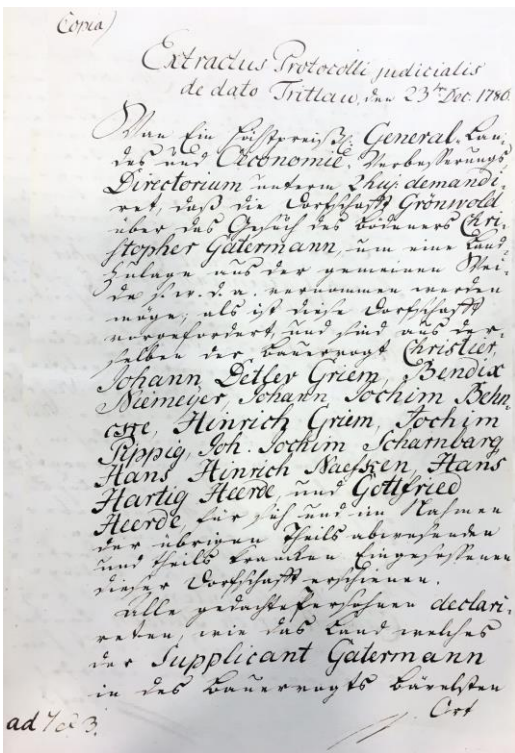 Copia)
Extractus Protocolli judicialis
de dato Trittau, den 23ten Dec. 1786.
Wan Ein höchstpreißl. General-Lan-
des und Oeconomie-Verbesserungs
Directorium unterm 2 huj. demandi-
ret, daß die Dorfschafft Grönwold
über das Gesuch des Bödeners Chri-
stopher Gätermann, um eine Land-
Zulage aus der gemeinen Wei-
de s. w. d. a. vernommen werden
möge; als ist diese Dorfschafft
vorgefordert, und sind aus der-
selben der Bauervogt Christier,
Johann Detlev Griem, Bendix
Niemeyer, Johann Jochim Behn-
cke, Hinrich Griem, Jochim
Pippig, Joh. Jochim Scharnbarg,
Hans Hinrich Naefszen, Hans
Hartig Heerde, und Gottfried
Heerde, für sich und im Nahmen
der übrigen theils abwesenden
und theils krancken Eingesessenen
dieser Dorfschafft erschienen.
Alle gedachte Persohnen declari-
reten, wie das Land welches
der Supplicant Gatermann
in des Bauervogts
Ort
ad 7 et 3.